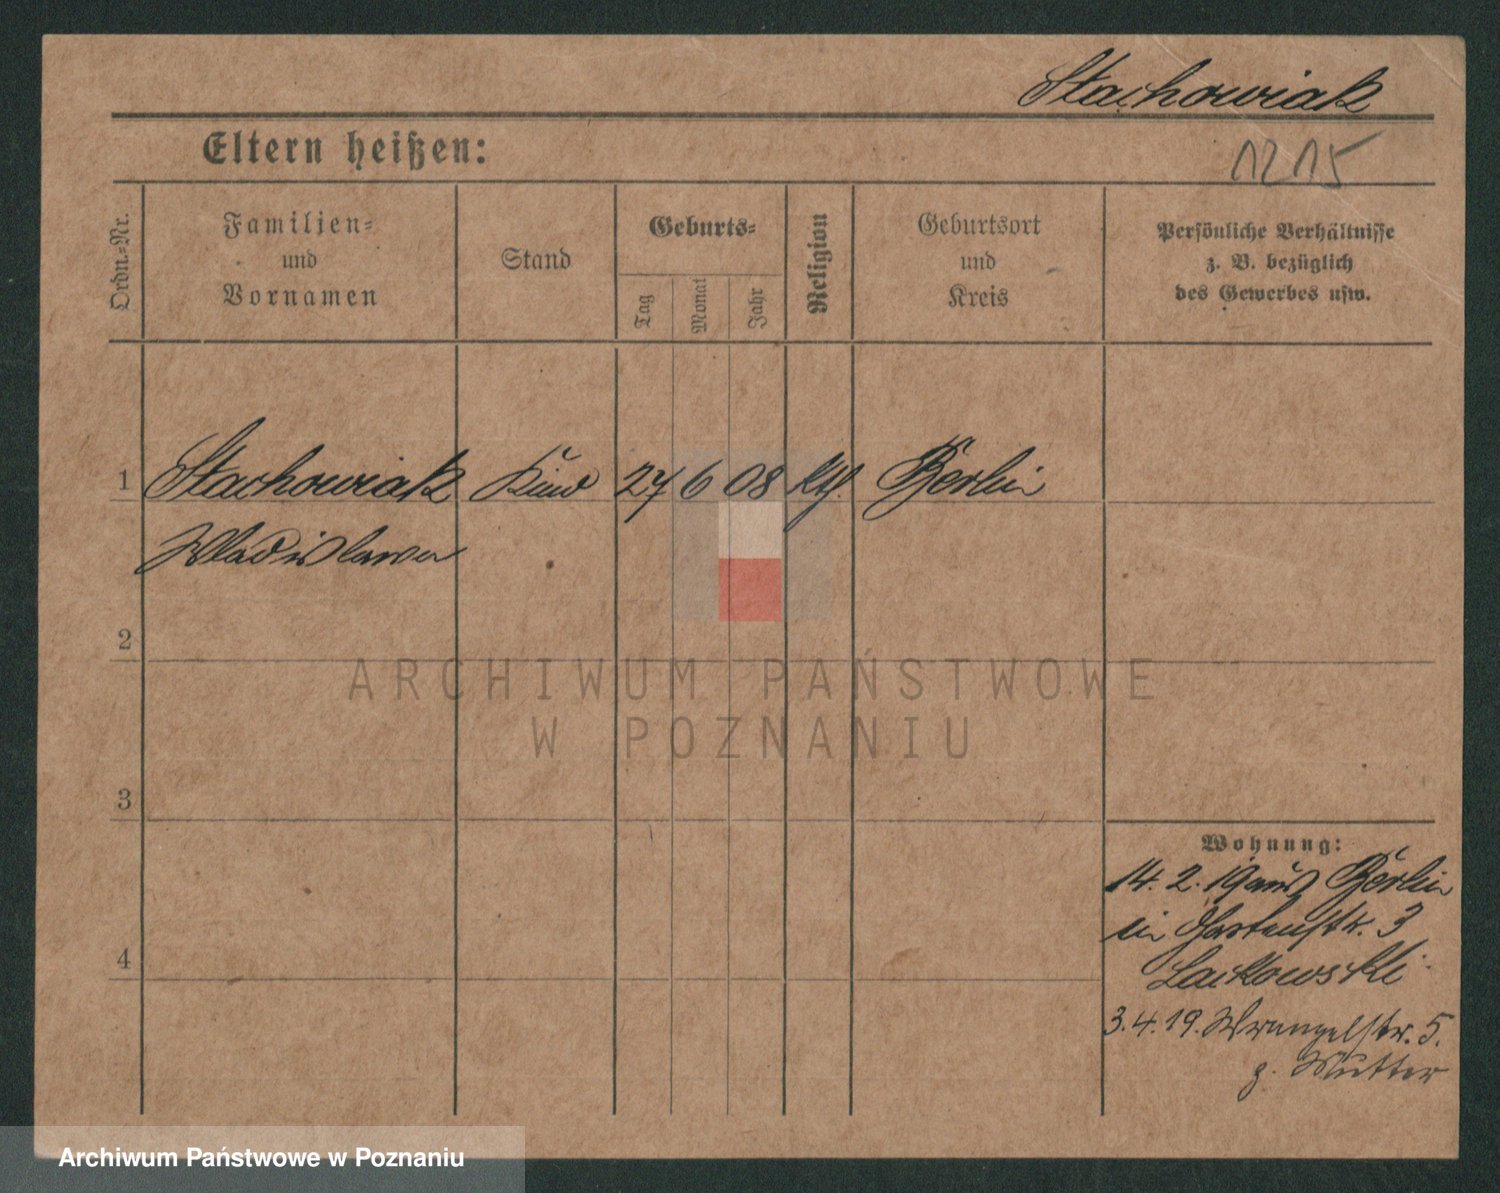 Stachowiak
Eltern heißen:
1215
Ordn.-Nr.
Familien-
und
Vornamen
Stand
Geburts-
Tag
Monat
Jahr
Religion
Geburtsort
und
Kreis
Persönliche Verhältnisse
z. B. bezüglich
des Gewerbes usw.
1 Stachowiak Kind 27 6 08 kth. Berlin
Wladislawa
2
3
4
ARCHIWUM PAŃSTWOWE
W POZNANIU
Wohnung:
14. 2. 19 aus Berlin
in Gartenstr. 3
Lackowski
3.4.19. Wrangelstr. 5.
z. Mutter
Archiwum Państwowe w Poznaniu